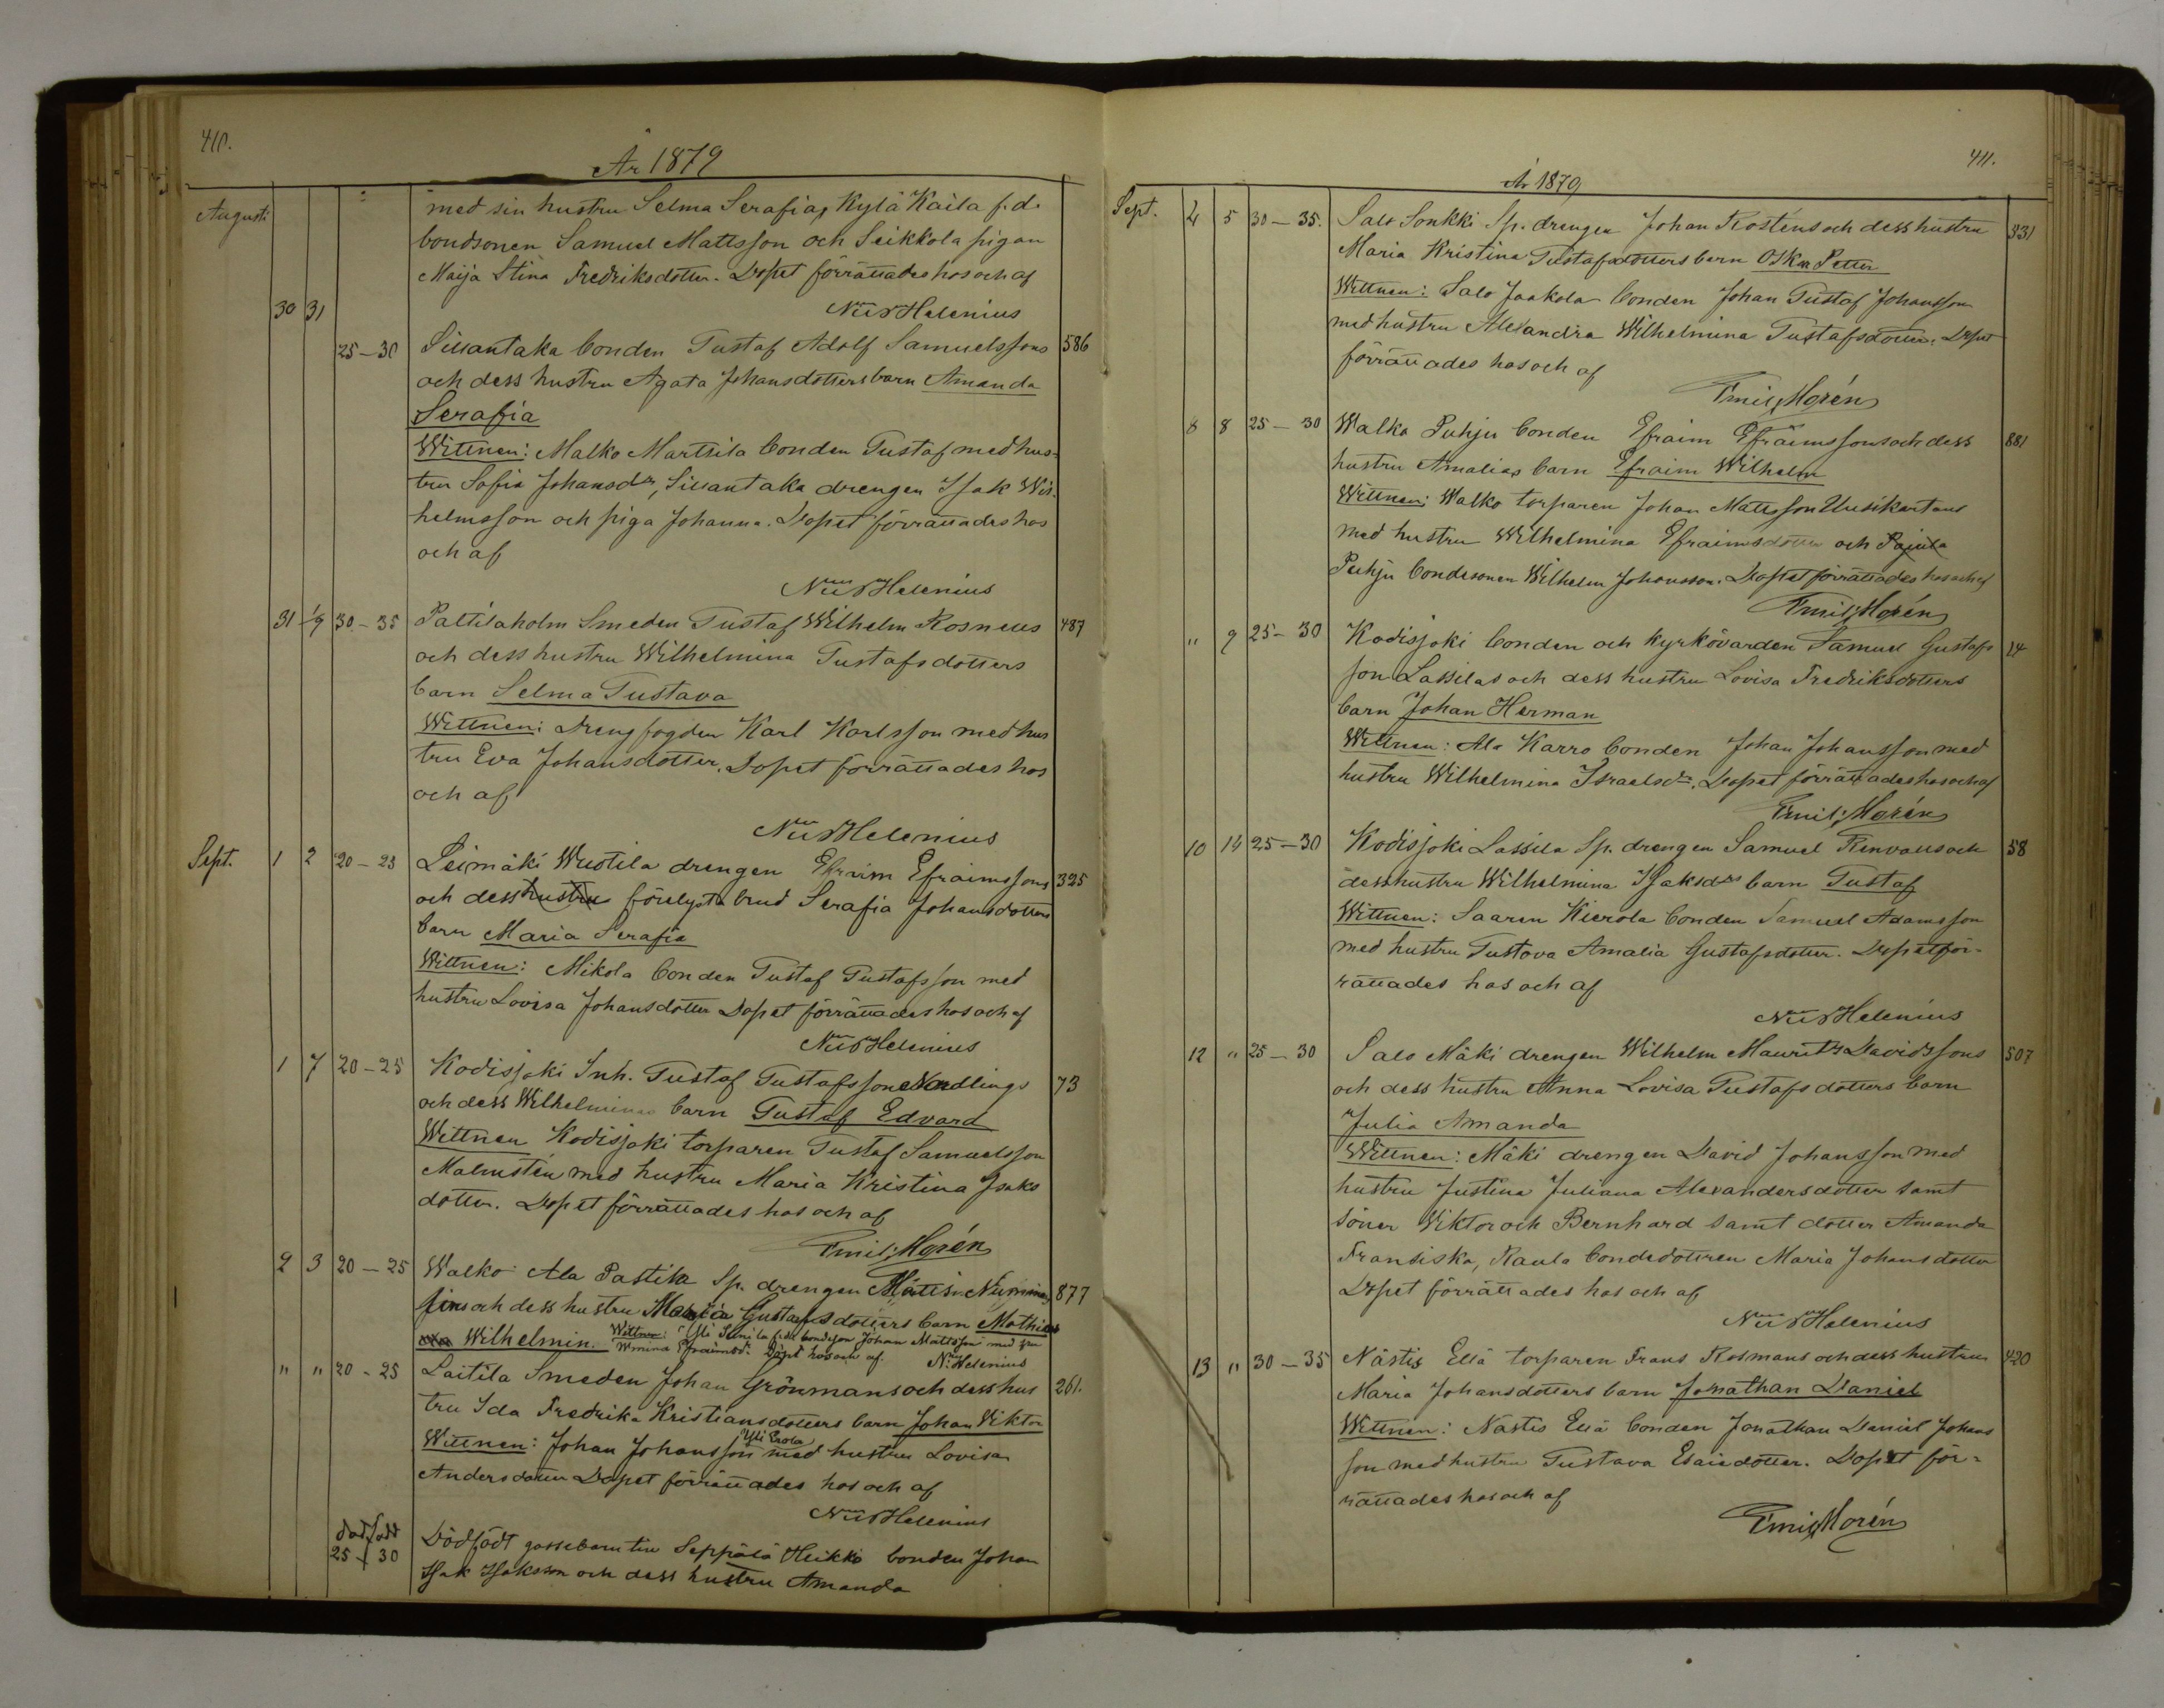 410.
År 1879
Augusti
med sin hustru Selma Serafia, Kylä Kaila f.d.
bondsonen Samuel Mattsson och Seikkola pigan
Maija Stina Fredriksdotter. Dopet förrättades hos och af
Nils Helenius
30 31
25-30 Sissantaka bonden Gustaf Adolf Samuelssons 586
och dess hustru Agata Johansdotters barn Amanda
Serafia
Wittnen: Malko Marttila bonden Gustaf med hus-
tru Sofia Johansdr, Sissantaka drengen Isak Wil-
helmsson och piga Johanna. Dopet förrättades hos
och af
Nils Helenius
31 1/9 30-35 Palttilaholm Smeden Gustaf Wilhelm Rosneus 487
och dess hustru Wilhelmina Gustafsdotters
barn Selma Gustava
Wittnen: Drengfogden Karl Karlsson med hus
tru Eva Johansdotter. Dopet förrättades hos
och af
Nils Helenius
Sept. 1 2 20-25 Leimäki Wuotila drengen Efraim Efraimssons 325
och dess hustru förelysta brud Serafia Johansdotters
barn Maria Serafia
Wittnen: Mikola bonden Gustaf Gustafsson med
hustru Lovisa Johansdotter Dopet förrättades hos och af
Nils Helenius
1 7 20-25 Kodisjoki Inh. Gustaf Gustafsson Nordlings 73
och dess Wilhelminas barn Gustaf Edvard
Wittnen Kodisjoki torparen Gustaf Samuelsson
Malmstén med hustru Maria Kristina Isaks
dotter. Dopet förrättades hos och af
Emil Morén
2 3 20-25 Walko Ala Pastika Sp. drengen Mattis Nummi 877
fins och dess hustru Maria Gustafsdotters barn Mathias
Wilhelmin. Wittnen: Yli Simila f.d. bondeson Johan Mattsson med fru
Wmina Efraimsdr. Döpt hos och af. N. Helenius
" " 20-25 Laitila Smeden Johan Grönmans och dess hus 261.
tru Ida Fredrika Kristiansdotters barn Johan Viktor
Yli Erola
Wittnen: Johan Johansson med hustru Lovisa
Andersdotter Dopet förrättades hos och af
Nils Helenius
dödfödt
25-30 Dödfödt gossebarn till Seppälä Heikki bonden Johan
Isak Isaksson och dess hustru Amanda
411.
År 1879
Sept. 4 5 30-35. Salo Sonkki Sp. drengen Johan Rosténs och dess hustru 331
Maria Kristina Gustafsdotters barn Oskar Petter
Wittnen: Salo Jaakola bonden Johan Gustaf Johansson
med hustru Alexandra Wilhelmina Gustafsdotter. Dopet
förrättades hos och af
Emil Morén
8 8 25-30 Walko Puhju bonden Efraim Efraimssons och dess 881
hustru Amalias barn Efraim Wilhelm
Wittnen: Walko torparen Johan Mattsson Uusikartano
med hustru Wilhelmina Efraimsdotter och Pajula
Puhju bondesonen Wilhelm Johansson. Dopet förrättades hos och af
Emil Morén
" 9 25-30 Kodisjoki bonden och kyrkovärden Samuel Gustafs 24
son Lassilas och dess hustru Lovisa Fredriksdotters
barn Johan Herman
Wittnen: Ala Karro bonden Johan Johansson med
hustru Wilhelmina Israelsdr. Dopet förrättades hos och af
Emil Morén
10 14 25-30 Kodisjoki Lassila Sp. drengen Samuel Renvalls och 58
dess hustru Wilhelmina Isaksdrs barn Gustaf
Wittnen: Saaren Kierola bonden Samuel Adamsson
med hustru Gustava Amalia Gustafsdotter. Dopet för-
rättades hos och af
Nils Helenius
12 " 25-30 Salo Mäki drengen Wilhelm Maurits Davidssons 507
och dess hustru Anna Lovisa Gustafsdotters barn
Julia Amanda
Wittnen: Mäki drengen David Johansson med
hustru Justina Juliana Alexandersdotter samt
söner Wiktor och Bernhard samt dotter Amanda
Fransiska, Raula bondedottren Maria Johansdotter
Dopet förrättades hos och af
Nils Helenius
13 " 30-35 Nästis Ellä torparen Frans Rosmans och dess hustru 420
Maria Johansdotters barn Jonathan Daniel
Wittnen: Nästis Ellä bonden Jonathan Daniel Johans
son med hustru Gustava Esaiedotter. Dopet för-
rättades hos och af
Emil Morén